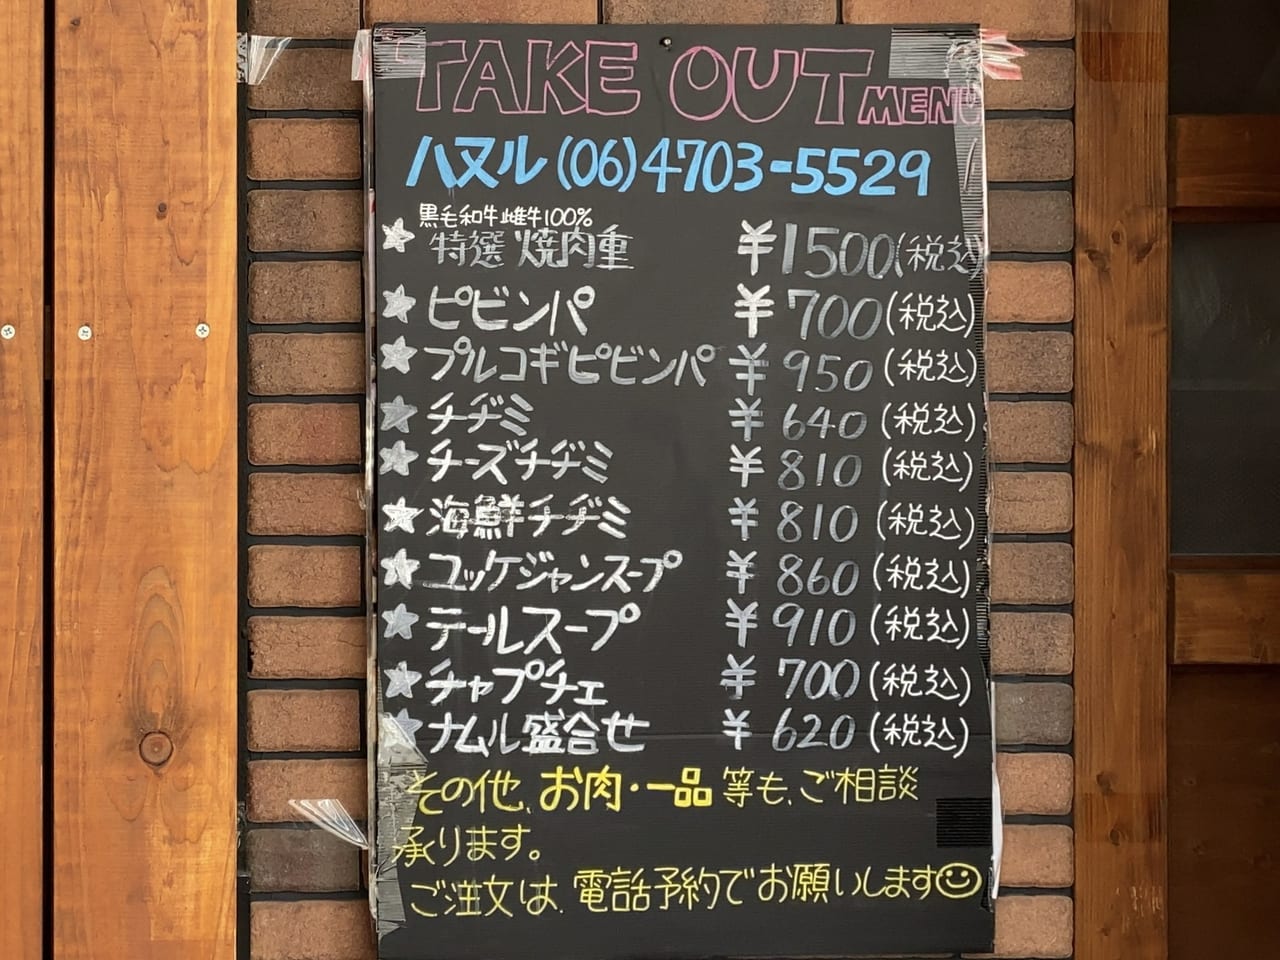 TAKE OUT MENU
ハヌル (06)4703-5529
黒毛和牛雌牛100%
★ 特選 焼肉重 ¥1500(税込)
★ ピビンパ ¥700(税込)
★ プルコギピビンパ ¥950(税込)
★ チヂミ ¥640(税込)
★ チーズチヂミ ¥810(税込)
★ 海鮮チヂミ ¥810(税込)
★ ユッケジャンスープ ¥860(税込)
★ テールスープ ¥910(税込)
★ チャプチェ ¥700(税込)
★ ナムル盛合せ ¥620(税込)
その他、お肉・一品等も、ご相談
承ります。
ご注文は、電話予約でお願いします☺